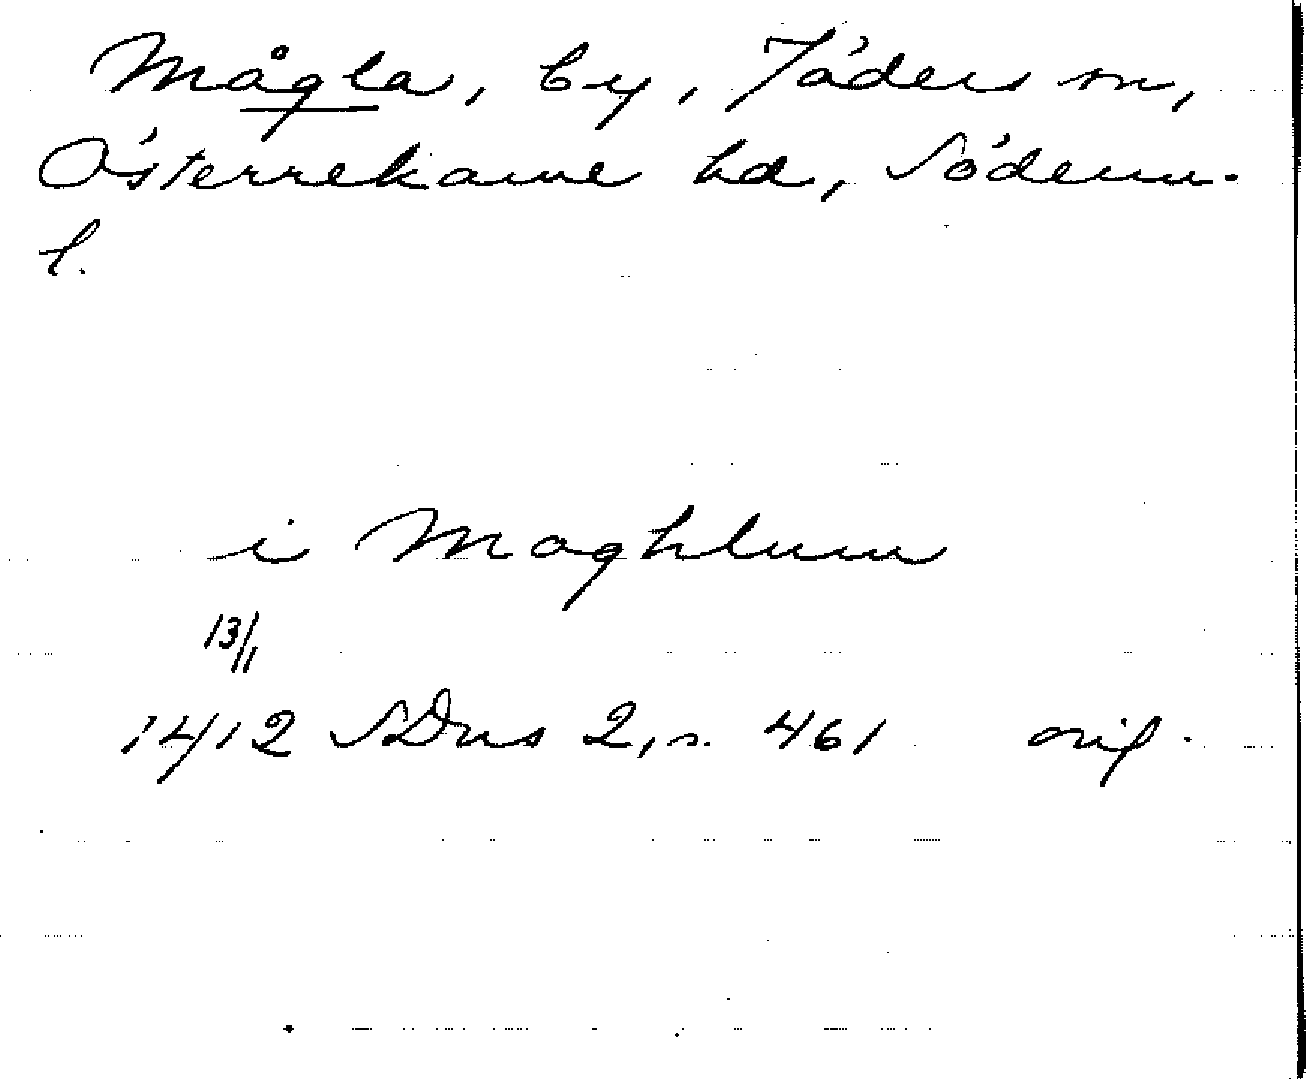 Mågla, by, Jäders sn,
Österrekarne hd, Söderm.
l.
i Maghlum
13/1
1412 SDns 2, s. 461 orig.